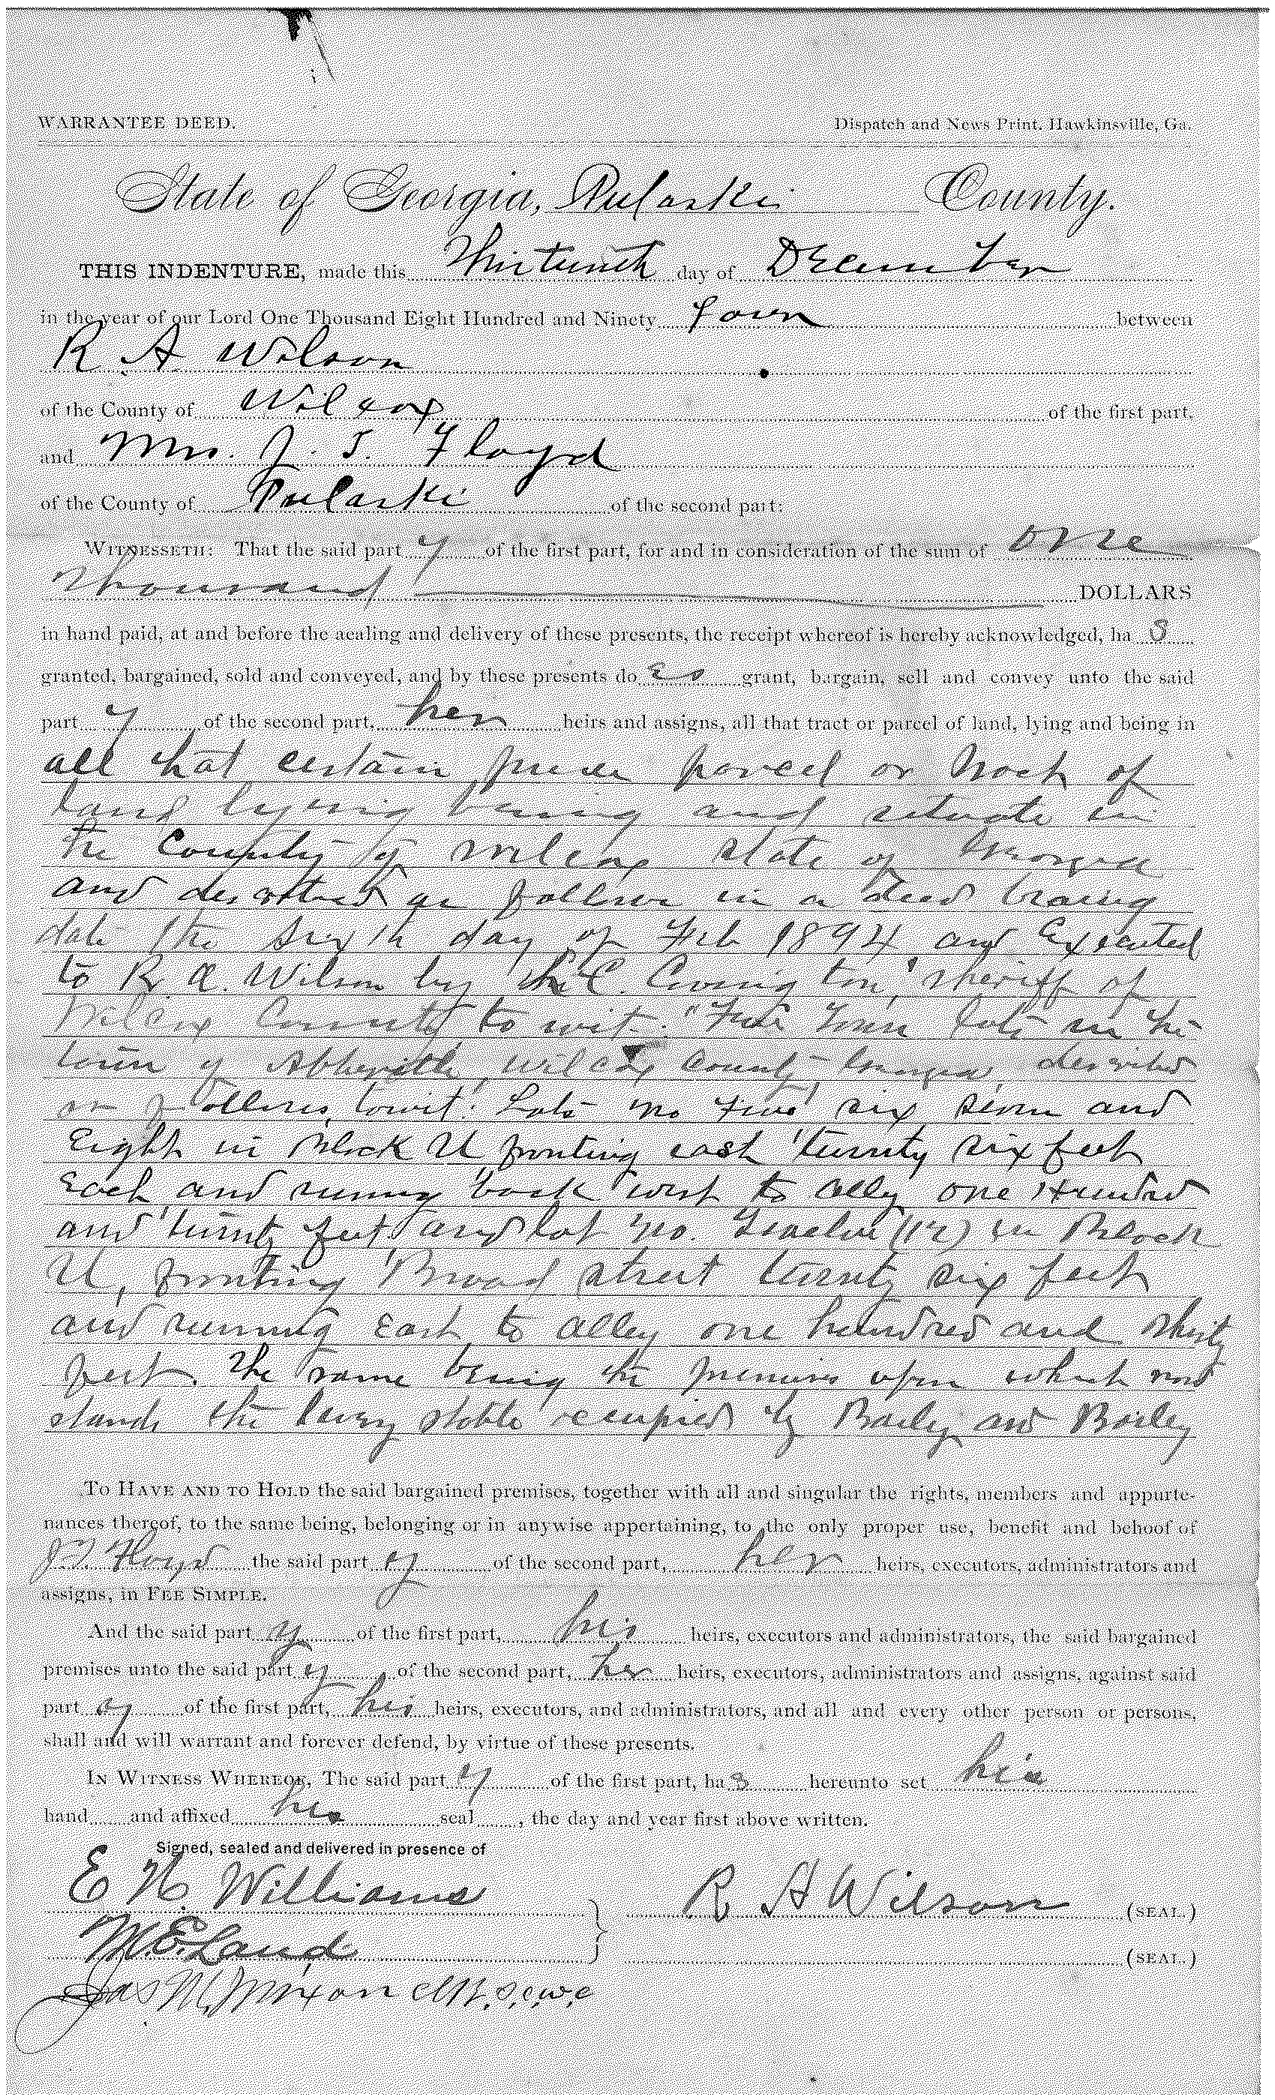 WARRANTEE DEED. Dispatch and News Print, Hawkinsville, Ga.
State of Georgia, Pulaski County.
THIS INDENTURE, made this Thirteenth day of December
in the year of our Lord One Thousand Eight Hundred and Ninety Four between
R A Wilson
of the County of Wilcox of the first part,
and Mrs. J. T. Floyd
of the County of Pulaski of the second part:
WITNESSETH: That the said part y of the first part, for and in consideration of the sum of one
thousand DOLLARS
in hand paid, at and before the aealing and delivery of these presents, the receipt whereof is hereby acknowledged, ha s
granted, bargained, sold and conveyed, and by these presents do es grant, bargain, sell and convey unto the said
part y of the second part, her heirs and assigns, all that tract or parcel of land, lying and being in
all that certain parcel or of
land lying being and situate in
the County of Wilcox State of Georgia
and described as follows in a deed bearing
date the Sixth day of Feb 1894 and Executed
to R. A. Wilson by C. Covington, sheriff of
Wilcox County to wit: "Five Town lots in the
town of Abbeville, Wilcox County Georgia, described
as follows, towit: Lots no Five six seven and
Eight in Block U fronting east twenty six feet
Each and runing back west to alley one Hundred
and twenty feet and lot no. Twelve (12) in Block
U, fronting Broad street twenty six feet
and running East to alley one hundred and thirty
feet. The same being the premises upon which now
stands the livery stable occupied by Baily and Bailey
To HAVE AND TO HOLD the said bargained premises, together with all and singular the rights, members and appurte-
nances thereof, to the same being, belonging or in anywise appertaining, to the only proper use, benefit and behoof of
J T. Floyd the said part y of the second part, her heirs, executors, administrators and
assigns, in FEE SIMPLE.
And the said part y of the first part, his heirs, executors and administrators, the said bargained
premises unto the said part y of the second part, her heirs, executors, administrators and assigns, against said
part y of the first part, his heirs, executors, and administrators, and all and every other person or persons,
shall and will warrant and forever defend, by virtue of these presents.
IN WITNESS WHEREOF, The said part y of the first part, ha s hereunto set his
hand and affixed his seal , the day and year first above written.
Signed, sealed and delivered in presence of
E H Williams R A Wilson (SEAL.)
M. E. Land (SEAL.)
Jas M. Mixon